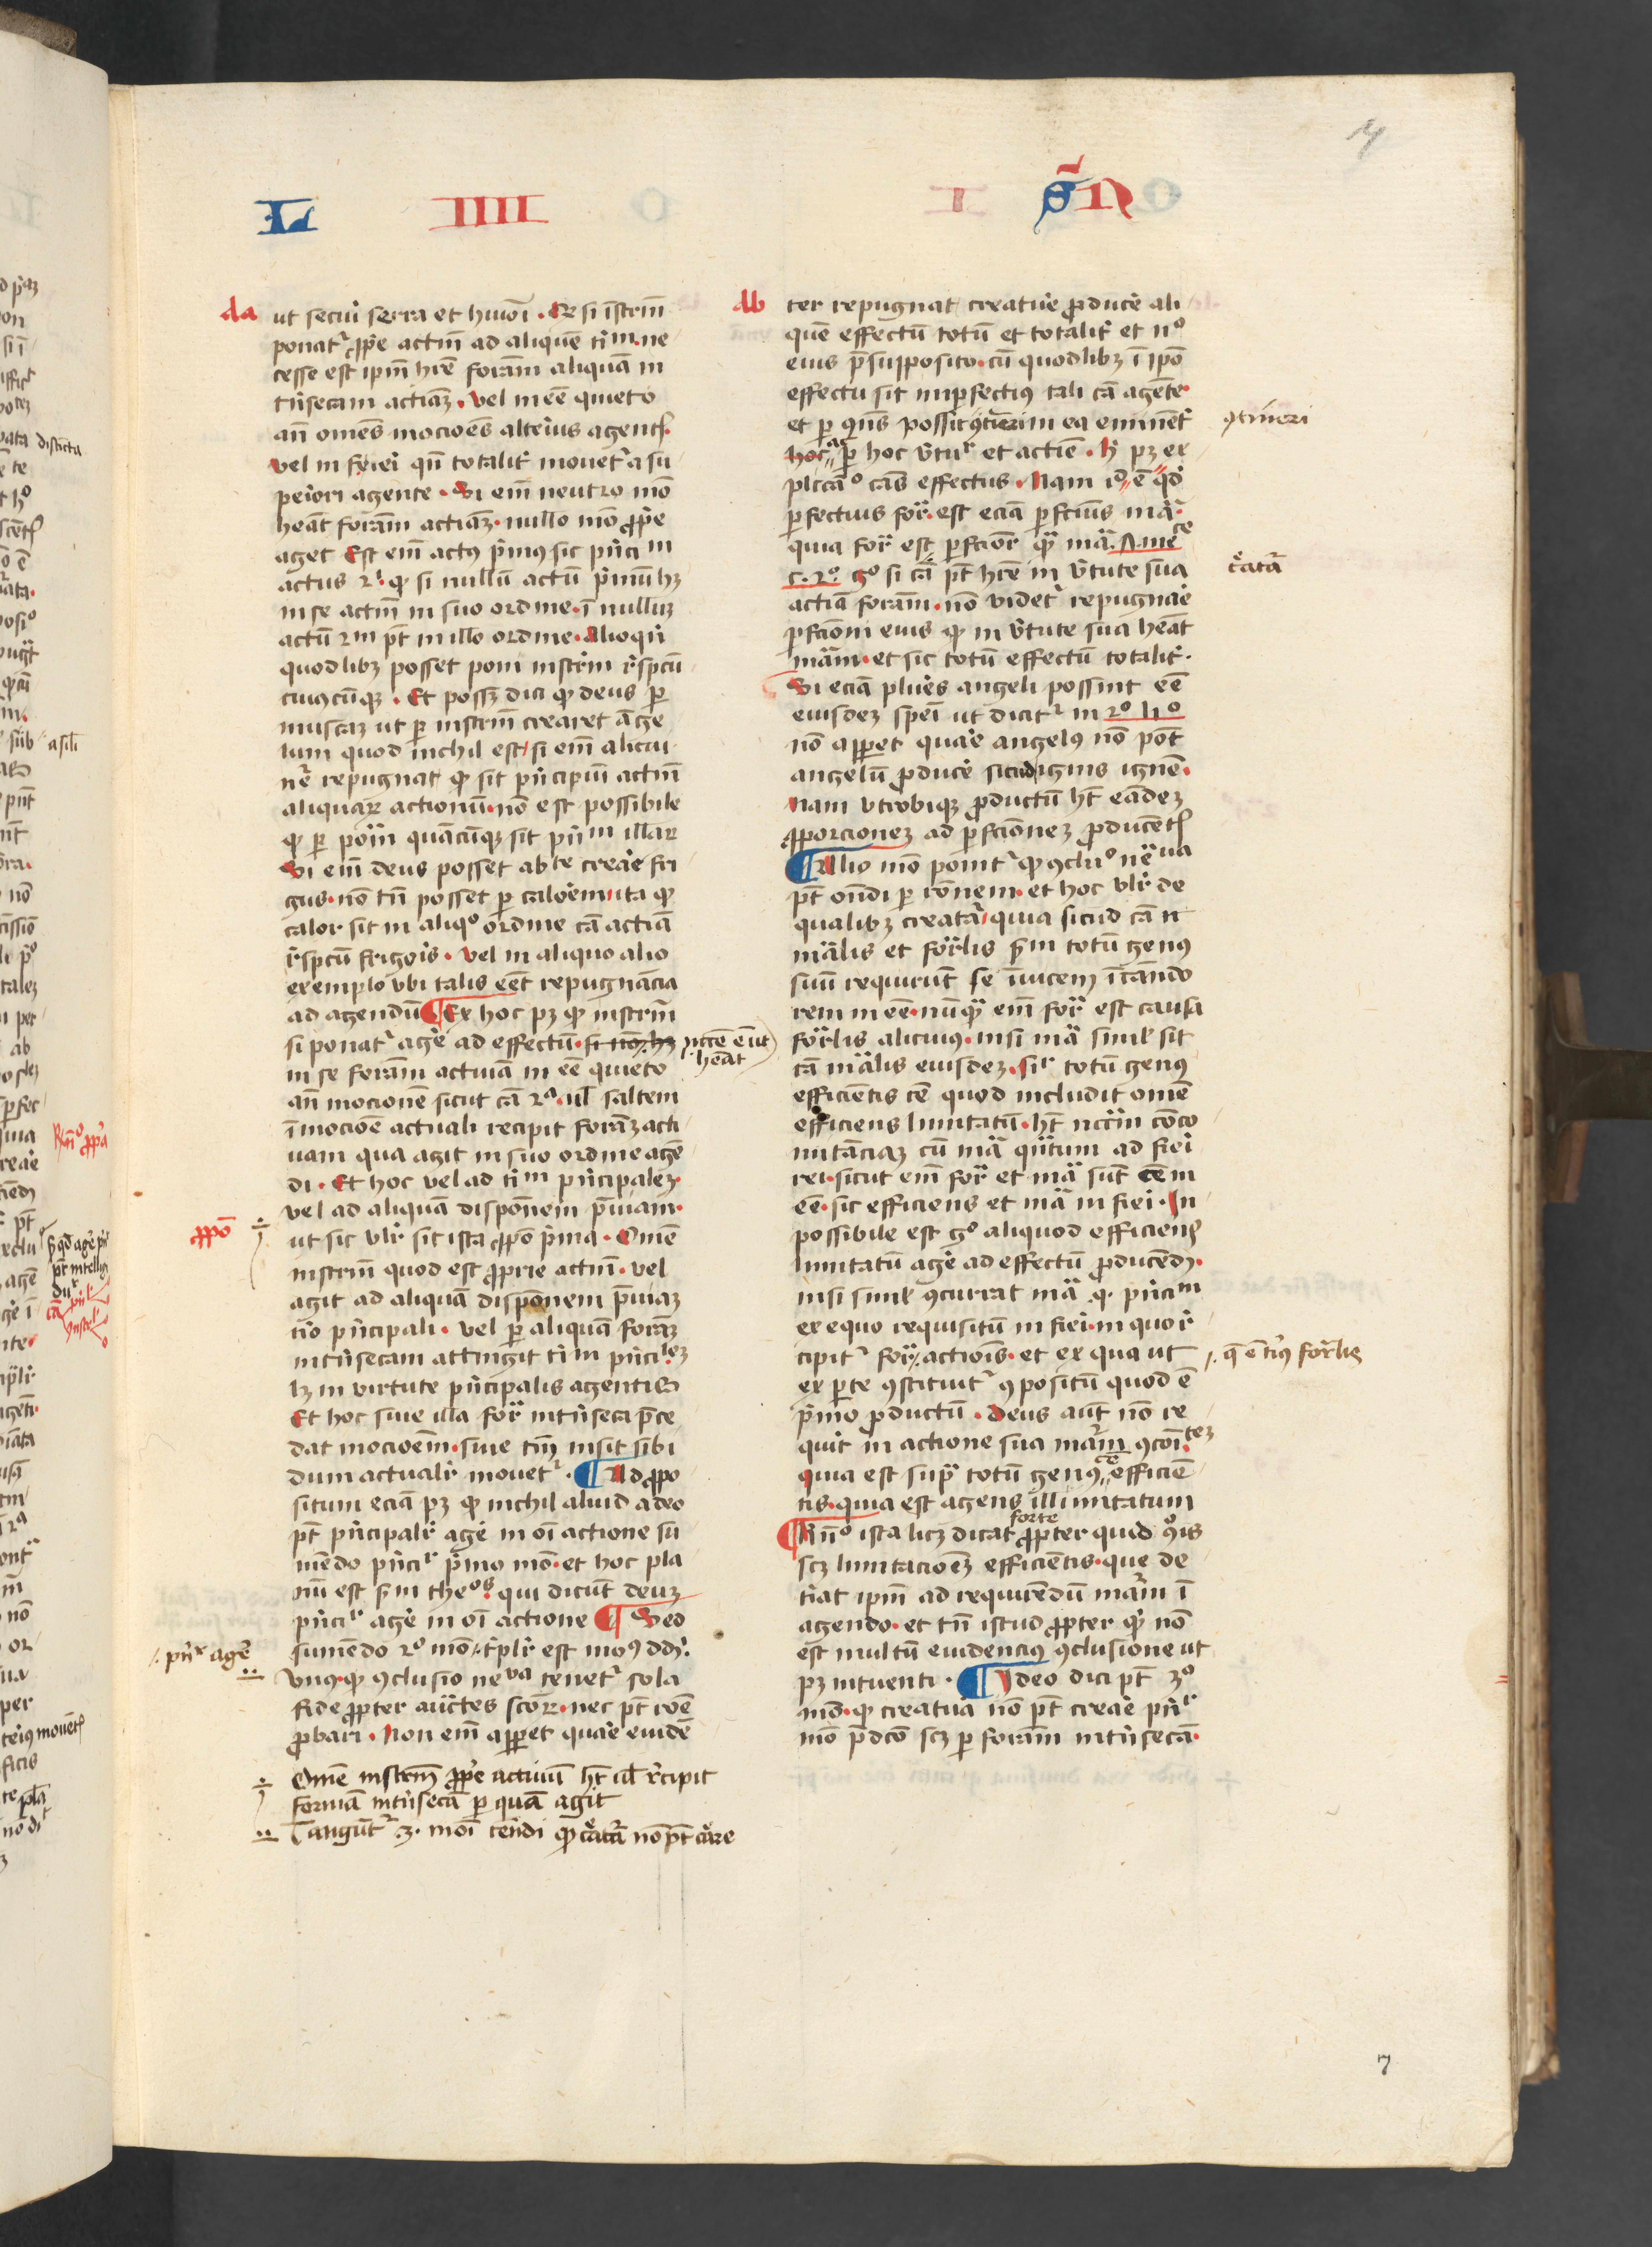 L IIII
S̄N I
da
ut secuī serra et huiōi . Et si īstrm̄
ponatr ꝓp̄e actiū ad aliquē tīm . ne
cesse est ip̄m hr̄e formā aliquā in
trīsecam actiuā . vel in eē quieto
an̄ omēs mocōes alterius agentꝭ
vel in fieri qn̄ totalit̄ mouetr a su
periori agente . Si em̄ neutro mō
heāt formā actiuā . nullo mō ꝓp̄e
aget Est em̄ actꝰ p̄mꝰ sic pn̄cim
actus 2i ꝙ si nullū actū p̄mū hꝫ
in se actiū in suo ordine . ī nullū
actū 2m pt̄ in illo ordine . Alioqn̄
quodlibꝫ posset poni instrm̄ rēspcū
cuiꝰcūqꝫ . Et possꝫ dici ꝙ deus ꝑ
muscaꝫ ut ꝑ instrm̄ crearet ange
lum quod nichil est / si em̄ alicui
nr̄e repugnat ꝙ sit pn̄cipiū actiū
aliquaꝝ actionū . non est possibile
ꝙ ꝑ poīm quācūqꝫ sit pn̄m illaꝝ
Si em̄ deus posset abte creare fri
gus . nō tn̄ posset ꝑ calorem ita ꝙ
calor sit in aliqo ordine cā actiā
rēspcū frigoris . vel in aliquo alio
exemplo vbi talis eēt repugnācia
ad agendū ¶ Ex hoc pꝫ ꝙ instrm̄
si ponatr agere ad effectū . si nō hꝫ
in se formā actiuā in eē quieto
an̄ mocionē sicut cā 2a . vl̄ saltem
ī mocōe actuali recipit formā acti
uam qua agit in suo ordine agē
di . Et hoc vel ad tīm pn̄cipalem
vel ad aliquā disponem p̄uiam .
ut sic vlr̄ sit ista ꝓpō p̄ma . Omē
instrm̄ quod est ꝓprie actiū . vel
agit ad aliquā disponem p̄uiaꝫ
tīo pn̄cipali . vel ꝑ aliquā formā
intrīsecam attingit tīm pn̄cilēꝫ
lꝫ in virtute pn̄cipalis agentis
Et hoc siue illa forā intrīseca p̄ce
dat mocōem . siue tm̄ insit sibi
dum actualr̄ mouetr . ¶ Ad ꝓpo
situm eciā pꝫ ꝙ nichil aliud a deo
pt̄ pn̄cipalr̄ agere in oī actione su
mēdo pn̄cir p̄mo mō . et hoc pla
nū est sm̄ theos . qui dicūt deuꝫ
pn̄cir agere in oī actione ¶ Sed
sumēdo 2o mō . tīplr̄ est modꝰ ddi .
vnꝰ . ꝙ ꝯclusio neua tenetr sola
fide ꝓpter auctes scōꝝ . nec pt̄ rōe
ꝓbari . Non em̄ apparet quare euidē
ꝓpō
÷ Omē instrm̄ ꝓp̄e actiuū ht̄ ul̄ recipit
formā intrīsecā ꝑ quā agit
db
ter repugnat creature ꝓducere ali
quē effectū totū et totalit̄ et no
eius p̄supposito . cū quodlibꝫ ī ipō
effectu sit īperfectiꝰ tali cā agēte .
et ꝑ qns possit ꝯtineri in ea eminēt
et ꝑ hoc v̄tur et actiue . hꝰ pꝫ ex
plicao cās effectus . Nam io ē qd
ꝑfectius forā est eciā ꝑfcius mā
quia forā est ꝑfcior qꝫ mā . A . me
c . 2o . go si cā pt̄ hr̄e in v̄tute sua
actiā formā . nō videtr repugnare
ꝑfcioni eius ꝙ in v̄tute sua heāt
mām . et sic totū effectū totalit̄ .
Si eciā plures angeli possint eē
eiusdeꝫ speī ut dicitr in 2o lio
nō apparet quare angelꝰ nō pōt
angelū ꝓducere sicud ignis ignē .
nam vtrobiqꝫ ꝓductū ht̄ eādeꝫ
ꝓporcioneꝫ ad ꝑfcioneꝫ ꝓducētꝭ
¶ Alio mō ponitr ꝙ ꝯclio neua
pt̄ ondi ꝑ rōnem . et hoc vlr̄ de
qualibꝫ creata / quia sicud cā
mālis et forālis sm̄ totū genꝰ
suū requirūt se īuicem ī cāndo
rem in eē . nūqꝫ em̄ forā est causa
forālis alicuiꝰ . nisi mā siml̄ sit
cā mālis eiusdeꝫ . sir totū genꝰ
efficiētis cē quod includit omē
efficiens limitatū . ht̄ nccīm cōco
mitāciaꝫ cū mā qntum ad fieri
rei . sicut em̄ forā et mā sūt cē in
eē . sic efficiens et mā in fieri . In
possibile est go aliquod efficiens
limitatū agere ad effectū ꝓducēdꝫ .
nisi siml̄ ꝯcurrat mā q̄ pn̄cim
ex equo requisitū in fieri . in quo re
cipitr forā actiōis . et ex qua ut
ex ꝑte ꝯstituitr ꝯpositū quod ē
p̄mo ꝓductū . Deus aūt nō re
quirit in actione sua mām ꝯcoīteꝫ
quia est supra totū genꝰ efficiē
tis . quia est agens illimitatum
¶ Rn̄o ista licꝫ dicat forte ꝓpter quid ꝯis
scꝫ limitacōeꝫ efficiētis . que de
tīat ip̄m ad requirēdū mām ī
agendo . et tn̄ istud ꝓpter qd nō
est multū euidenciꝰ ꝯclusione ut
pꝫ intuenti . ¶ Ideo dici pt̄ 3o
mō . ꝙ creatura nō pt̄ creare pn̄r
mō p̄dcō scꝫ ꝑ formā intrīsecā .
ꝯtineri
7